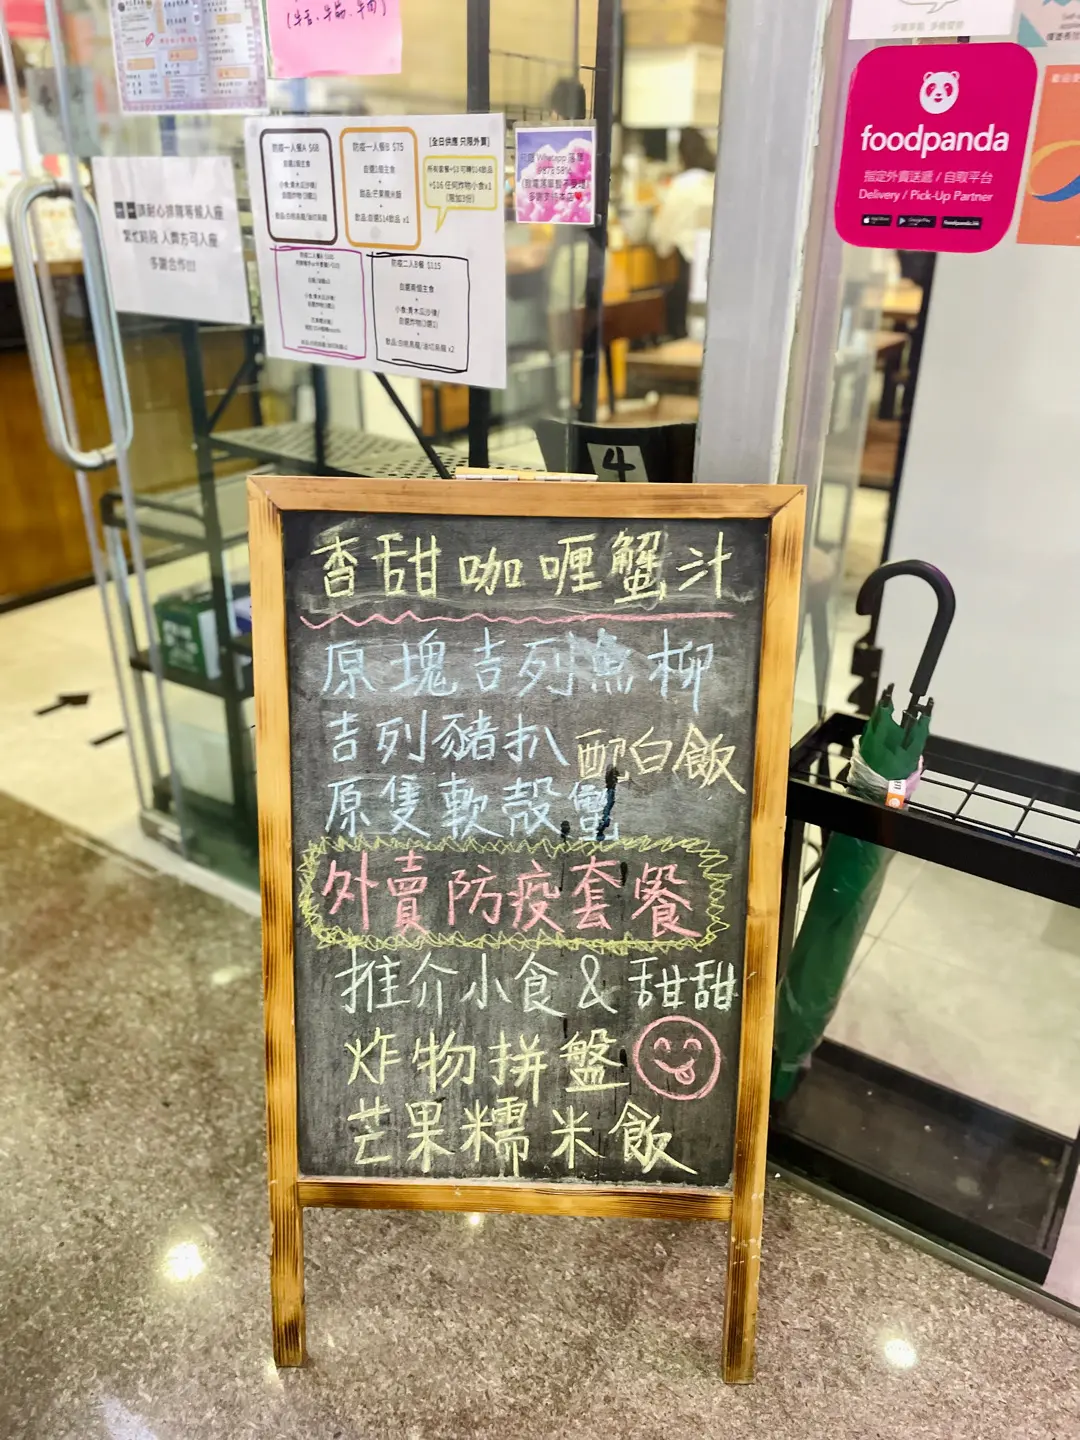 (牛舌、牛筋、牛肉)
請耐心排隊等候入座
繁忙時段 人齊方可入座
多謝合作!!!
防疫一人餐A $68
自選1個主食
+
小食:青木瓜沙律/
自選炸物(3選1)
+
飲品:白桃烏龍/油切烏龍 x1
防疫一人餐B $75
自選1個主食
+
甜品:芒果糯米飯
+
飲品:自選$14飲品 x1
[全日供應 只限外賣]
所有套餐+$3可轉$14飲品
+$16 任何炸物小食x1
(限加3份)
防疫二人B餐 $115
自選兩個主食
+
小食:青木瓜沙律/
自選炸物(3選1)
+
飲品:白桃烏龍/油切烏龍 x2
4
foodpanda
指定外賣送遞 / 自取平台
Delivery / Pick-Up Partner
App Store
Google Play
foodpanda.hk
香甜咖喱蟹汁
原塊吉列魚柳
吉列豬扒 配白飯
原隻軟殼蟹
外賣防疫套餐
推介小食 & 甜甜
炸物拼盤
芒果糯米飯